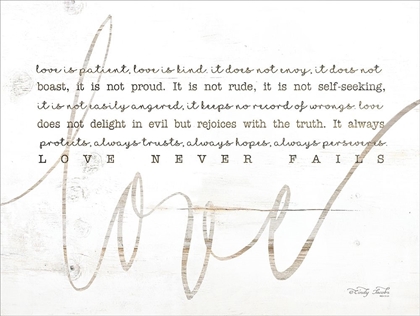 love is patient, love is kind. it does not envy, it does not
boast, it is not proud. It is not rude, it is not self-seeking,
it is not easily angered, it keeps no record of wrongs. love
does not delight in evil but rejoices with the truth. It always
protects, always trusts, always hopes, always perseveres.
LOVE NEVER FAILS
love
Cindy Jacobs